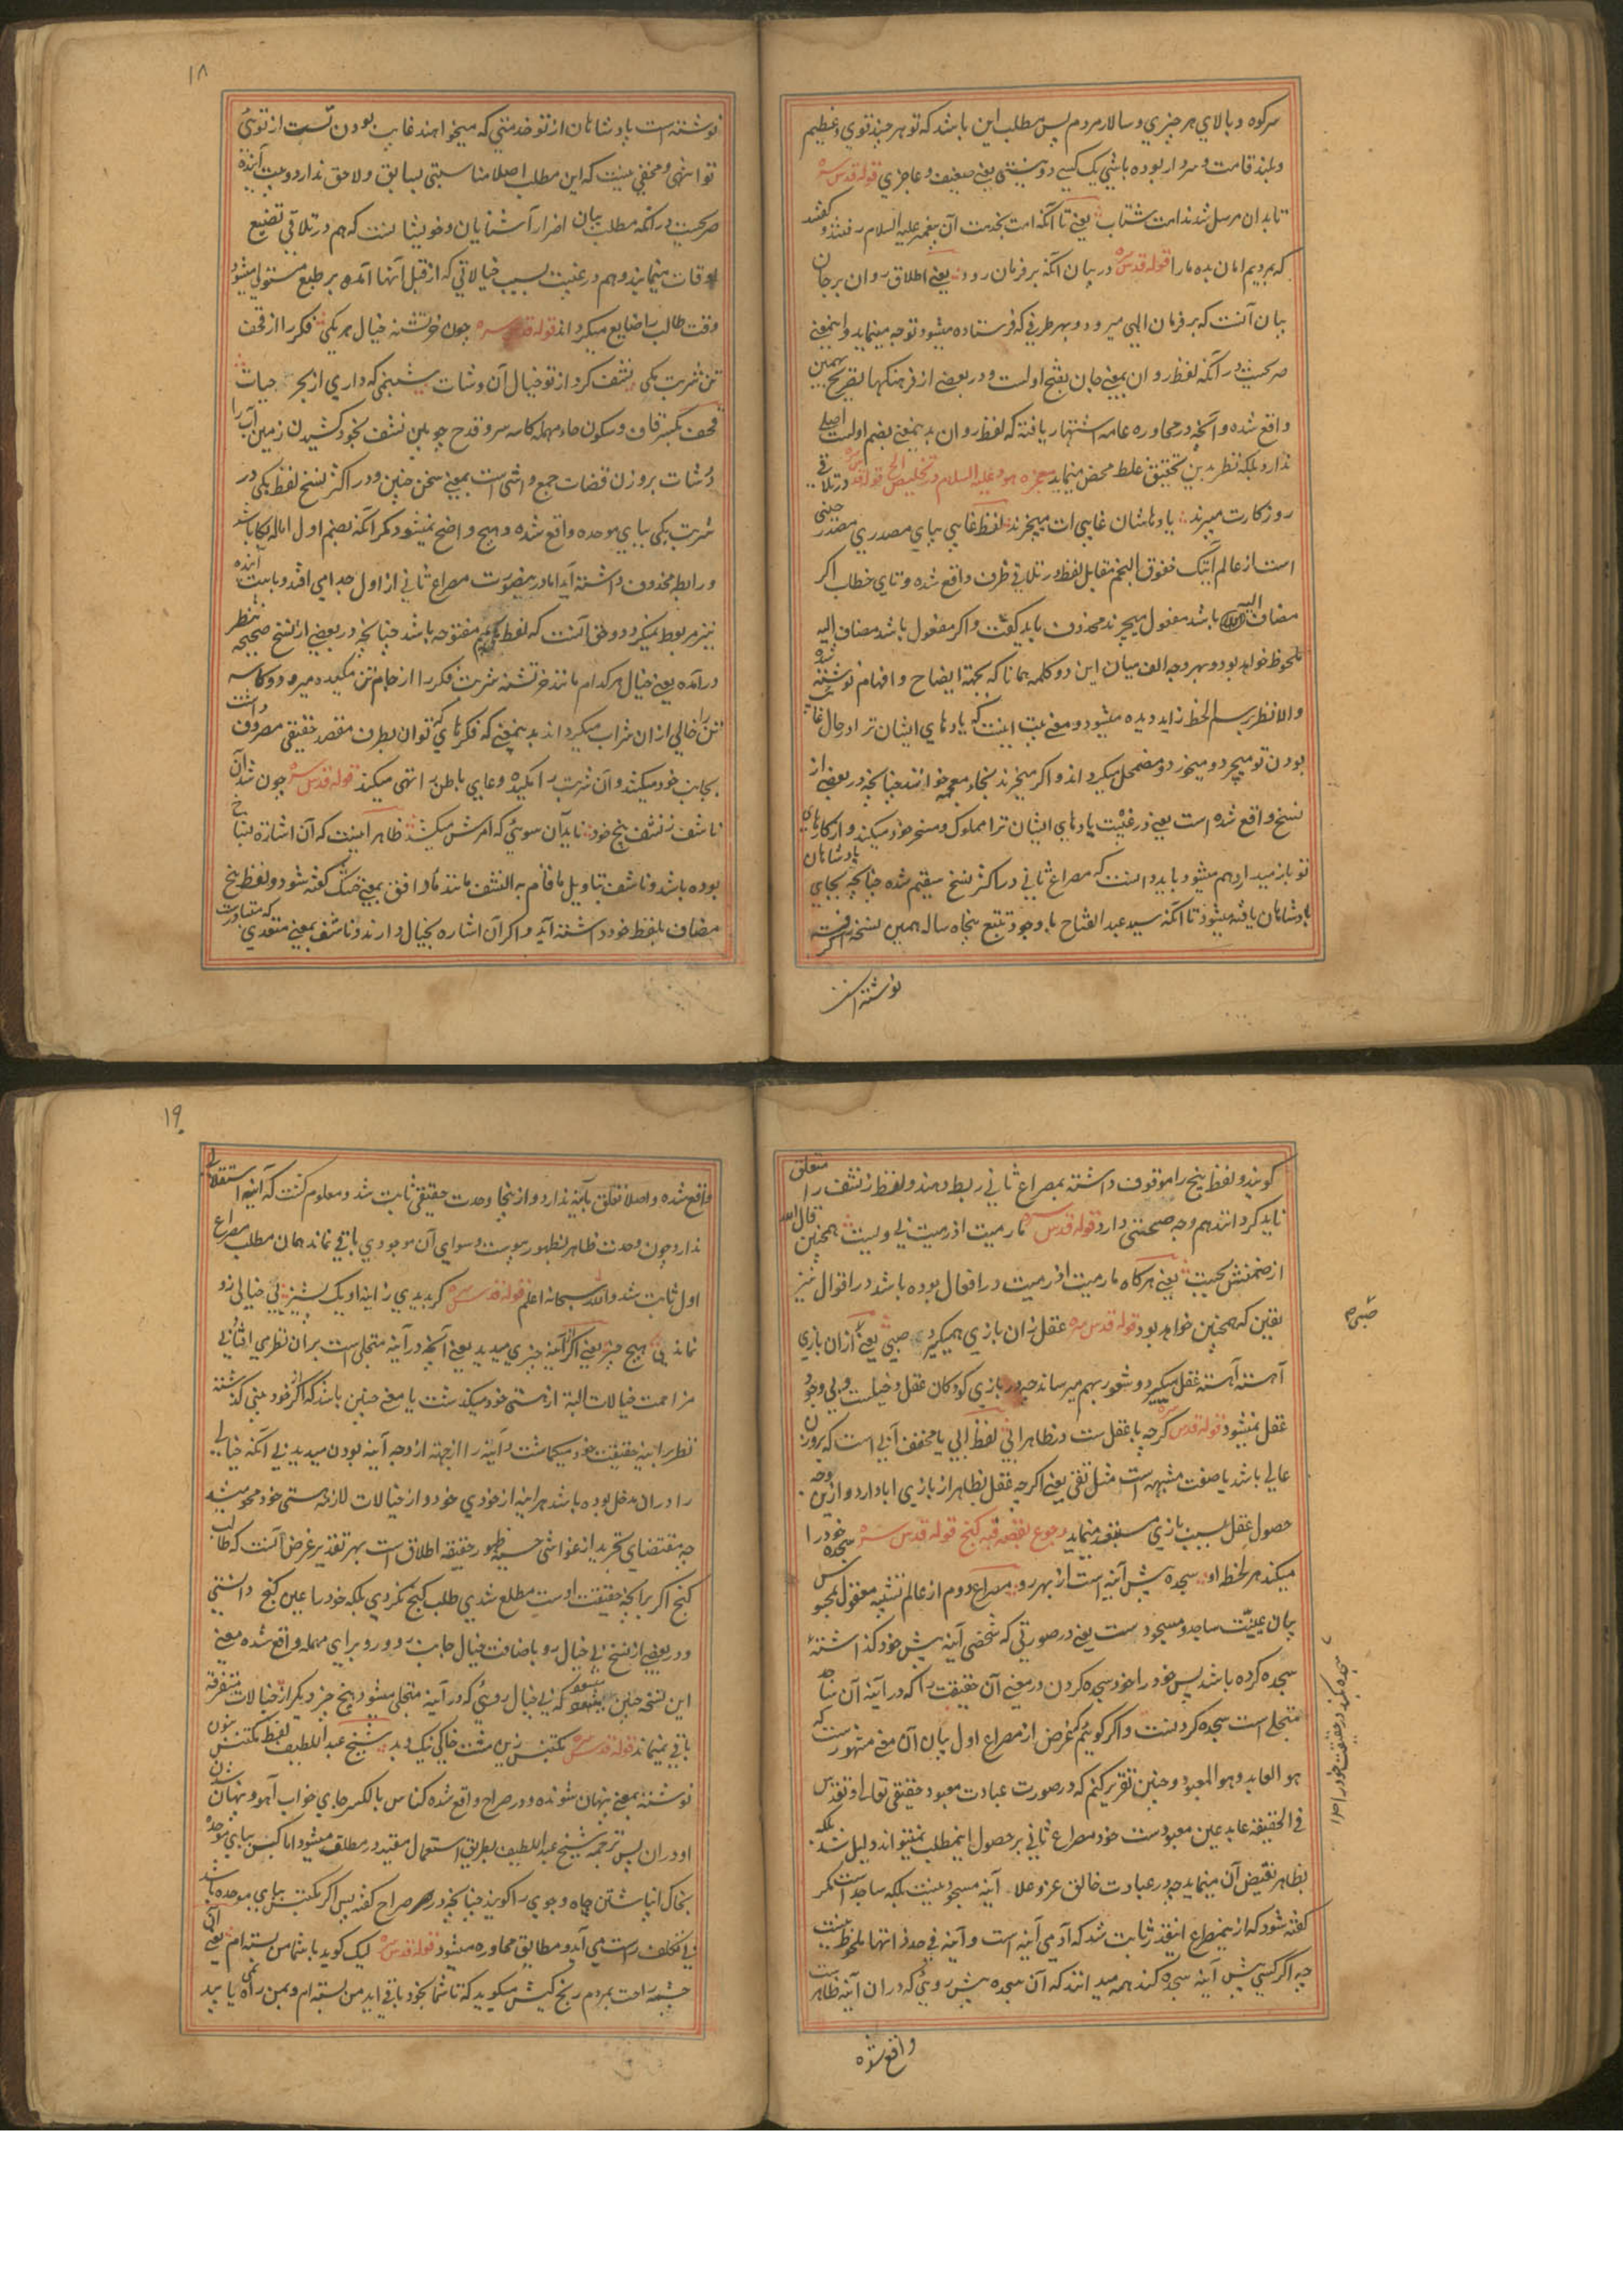 سرکوه و بالای هر چیزی و سالار مردم پس مطلب این باشد که تو هر چند قوی و عظیم
و بلند قامت و سردار بوده باشی یک کسی دوستی یعنی ضعیف و عاجزی قوله قدس سره
تابدان مرسل شدند امت شتاب یعنی تا آنکه امت بخدمت آن پیغمبر علیه السلام رفتند و گفتند
که مردیم امان بده ما را قوله قدس سره در بیان آنکه بر فرمان رود یعنی اطلاق روان بر جان
بیان آنست که بر فرمان الهی میرود و بهر طرفی که فرستاده میشود توجه مینماید و اینمعنی
صریحست در آنکه لفظ روان بمعنی جان بفتح اولست و در بعضی از فرهنگها بتصریح همین
واقع شده و آنچه در محاوره عامه اشتهار یافته که لفظ روان بدینمعنی بضم اولست اصلی
ندارد بلکه نظر بدین تحقیق غلط محض مینماید معجزه هود علیه السلام در تخلیص الخ قوله قدس سره در تلاقی
روزگارت میبرند یادهاشان غایبی ات میچرند لفظ غایبی بیای مصدری مصدر حینی
است از عالم آتیک خفوق النجم مقابل لفظ در تلاقی ظرف واقع شده و تای خطاب اگر
مضاف الیه آن باشد مفعول میچرند محذوف باید گفت و اگر مفعول باشد مضاف الیه
ملحوظ خواهد بود و بهر وجه الف میان این دو کلمه همانا که بجهة ایضاح و افهام نوشته شده
والا نظر برسم الخط زاید دیده میشود و معنی بیت اینست که یادهای ایشان ترا در حال غایب
بودن تو میچرد و میخورد و مضمحل میگرداند و اگر میخرند بخاء معجمه خوانند چنانچه در بعضی از
نسخ واقع شده است یعنی در غیبت یادهای ایشان ترا مملوک و مسخر خود میکند و از کارهای
تو باز میدارد هم میشود باید دانست که مصراع ثانی در اکثر نسخ سقیم شده چنانچه بجای یادشاهان
پادشاهان یافته میشود تا آنکه سید عبد الفتاح با وجود تتبع پنجاه ساله همین نسخه گرفته
نوشته است
۱۸
نوشته است پادشاهان از تو خدمتی که میخواهند غایب بودن تست از توئی
تو انتهی و مخفی نیست که این مطلب اصلا مناسبتی بسابق و لاحق ندارد و بیت آینده
صریحست در آنکه مطلب بیان اضرار آشنایان و خویشانست که هم در تلاقی تضییع
اوقات مینمایند و هم در غیبت بسبب خیالاتی که از قبل آنها آمده بر طبع مستولی میشود
وقت طالب را ضایع میگرداند قوله قدس سره چون خر تشنه خیال هر یکی فکر را از قحف
تن شربت مکی نشف کرد از تو خیال آن وشات شبنمی که داری از بحر حیات
قحف بکسر قاف و سکون حاء مهمله کاسه سر و قدح چوبین نشف بخود کشیدن زمین آب را
وشات بر وزن قضات جمع واشی است بمعنی سخن چین و در اکثر نسخ لفظ بکی در
شربت بکی ببای موحده واقع شده و هیچ واضح نمیشود مگر آنکه بضم اول اماله بکا باشد
و رابط محذوف داشته آید اما در اینصورت مصراع ثانی از اول جدا می افتد و با بیت آینده
نیز مربوط نمیگردد و حق آنست که لفظ مکی بمیم مفتوحه باشد چنانچه در بعضی از نسخ صحیحه بنظر
درآمده یعنی خیال هر کدام مانند خر تشنه شربت فکر را از جام تن مکیده میرود و کاسه
تن را خالی از آن شراب میگرداند بدینمعنی که فکرهای که توان بطرف مقصد حقیقی مصروف داشت
بجانب خود میکشد و آن شربت را مکیده وعای باطن را تهی میکند قوله قدس سره چون شد آن
ناشف ز نشف بیخ خود ناید آن سوئی که امرش میکشد ظاهر اینست که آن اشارة بشاخ
بوده باشد و ناشف بتاویل ما قام به النشف مانند ماء دافق بمعنی خشک گفته شود و لفظ بیخ
مضاف بلفظ خود داشته آید و اگر آن اشاره بخیال دارند و ناشف بمعنی متعدی که متبادرست
گویند و لفظ بیخ را موقوف داشته بمصراع ثانی ربط دهند و لفظ ز نشف را متعلق
ناید گردانند هم وجه صحتی دارد قوله قدس سره مارمیت اذ رمیت نی ولیست همچنین قال الله
از ضمنش بجست یعنی هرگاه مارمیت اذ رمیت در افعال بوده باشد در اقوال نیز
یقین که همچنین خواهد بود قوله قدس سره عقل زان بازی همیگیرد صبی یعنی از آن بازی
صبی
آهسته آهسته عقل میگیرد و شعور بهم میرساند چه در بازی کودکان عقل دخیلست و بی وجود
عقل نمیشود قوله قدس سره گرچه با عقل ست در ظاهر ابی لفظ ابی یا مخفف آبی است که بر وزن
عالی باشد یا صفت مشبهه است مثل تقی یعنی اگرچه عقل بظاهر از بازی ابا دارد و ازین وجه
حصول عقل بسبب بازی مستبعد مینماید رجوع بقصه قبه گنج قوله قدس سره سجده خود را
میکند هر لحظه او سجده پیش آینه است از بهر رو مصراع دوم از عالم تشبیه معقول بمحسوس
بیان عینیت ساجد و مسجودست یعنی در صورتی که شخصی آینه پیش خود گذاشته
سجده کرده باشد پس خود را خود سجده کردن در معنی آن حقیقت را که در آینه آن ساجد
متجلی است سجده کردنست و اگر گوئیم که غرض از مصراع اول بیان آن معنی مشهورست که
هو العابد و هو المعبود و چنین تقریر کنیم که در صورت عبادت معبود حقیقی تعالی و تقدس
فی الحقیقه عابد عین معبودست خود مصراع ثانی بر حصول اینمطلب نمیتواند دلیل شد بلکه
بظاهر نقیض آن مینماید چه در عبادت خالق عز و علا آینه مسجود نیست بلکه ساجد است مگر
گفته شود که از ینمصراع اینقدر ثابت شد که آدمی آینه است و آینه فی حد ذاتها ملحوظ نیست
چه اگر کسی پیش آینه سجده کند همه میدانند که آن سجده پیش روئی که در آن آینه ظاهرست
سجده میکند در حقیقت خود را
واقع شده
۱۹
واقع شده و اصلا تعلق بآینه ندارد و از ینجا وحدت حقیقی ثابت شد و معلوم گشت که آینه استقلالی
ندارد و چون وحدت ظاهر بظهور پیوست و سوای آن موجودی باقی نماند همان مطلب مصراع
اول ثابت شد والله سبحانه اعلم قوله قدس سره گر بدیدی ز آینه او یک پشیز بی خیالی زو
نماندی هیچ چیز یعنی اگر از آینه چیزی میدید یعنی آنچه در آینه متجلی است بر آن نظری افتادی بی
مزاحمت خیالات البته از هستی خود میگذشت یا معنی چنین باشد که اگر از خود بینی گذشته
نظر بر آینه حقیقت خود میگماشت و آینه را از جهة از وجه آینه بودن میدید بی آنکه خیالی
را در آن مدخل بوده باشد هر آینه از خودی خود و از خیالات لازمه هستی خود محو میشد
چه مقتضای تجرید از غواشی حسیه ظهور حقیقه اطلاق است بهر تقدیر غرض آنست که طالب
گنج اگر بر آنچه حقیقت اوست مطلع شدی طلب گنج نکردی بلکه خود را عین گنج دانستی
و در بعضی از نسخ بی خیال رو باضافت خیال جانب رو و رو برای مهمله واقع شده معنی
این نسخه چنین میشود که بی خیال روئی که در آینه متجلی میشود هیچ چیز دیگر از خیالات متفرقه
باقی نمیماند قوله قدس سره مکتنس زین مشت خاکی نیک دید شیخ عبد اللطیف لفظ مکتنس بنون
نوشته بمعنی پنهان شونده و در صراح واقع شده کناس بالکسر جای خواب آهو و پنهان شدن
او در آن پس ترجمه شیخ عبد اللطیف بطریق استعمال مقید در مطلق میشود اما کبس ببای موحده
بخاک انباشتن چاه و جوی را گویند چنانچه در صراح گفته پس اگر مکتبس ببای موحده باشد
بی تکلف راست می آید و مطابق محاوره میشود قوله قدس سره لیک گوید با شما من بسته ام یعنی آن
چشمه راحت بمردم رنج کیش میگوید که تا شما بخود باقی اید من بسته ام و بمن راه نمی یابید